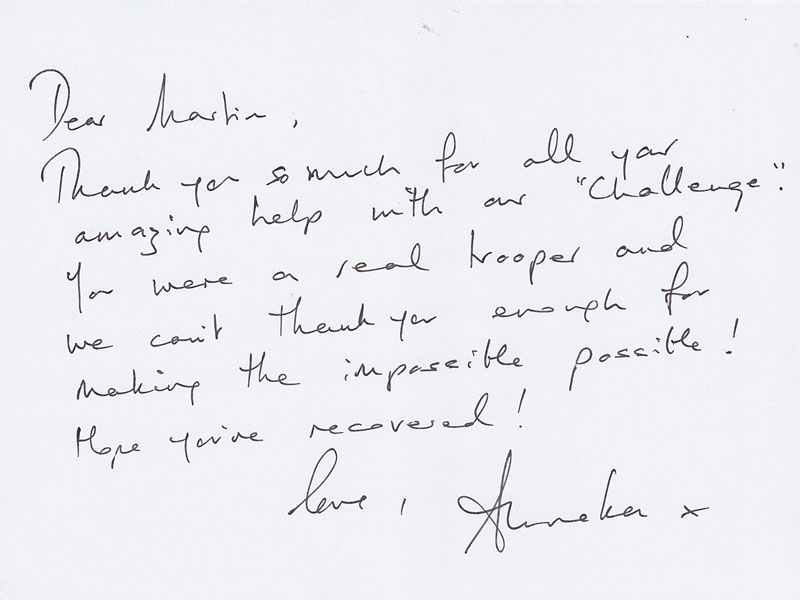 Dear Martin,
Thank you so much for all your
amazing help with our "Challenge".
You were a real trooper and
we can't thank you enough for
making the impossible possible!
Hope you've recovered!
love, Anneka x